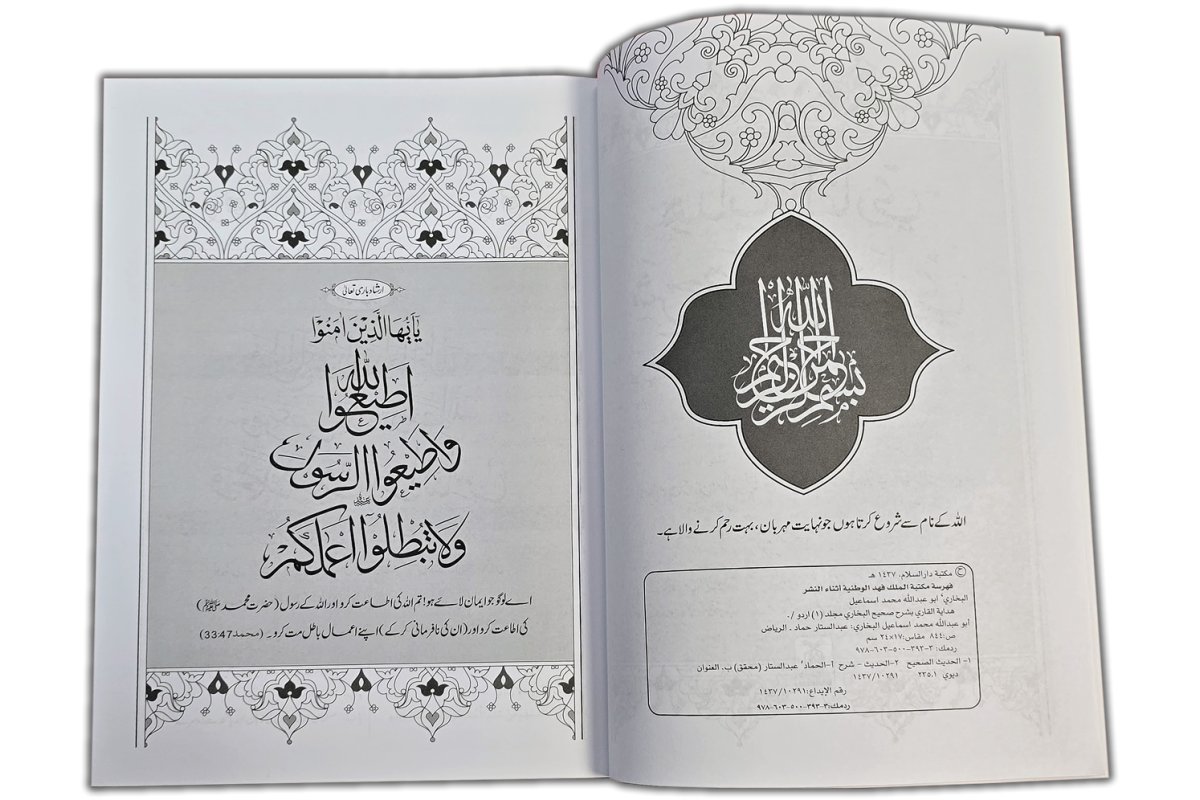 ارشاد باری تعالیٰ
یٰۤاَیُّهَا الَّذِیْنَ اٰمَنُوْۤا
اَطِیْعُوا اللّٰهَ
وَاَطِیْعُوا الرَّسُوْلَ
وَلَا تُبْطِلُوْۤا اَعْمَالَكُمْ
اے لوگو جو ایمان لائے ہو! تم اللہ کی اطاعت کرو اور اللہ کے رسول (حضرت محمد ﷺ)
کی اطاعت کرو اور (ان کی نافرمانی کر کے) اپنے اعمال باطل مت کرو۔ (محمد 33:47)
بسم الله الرحمن الرحيم
اللہ کے نام سے شروع کرتا ہوں جو نہایت مہربان، بہت رحم کرنے والا ہے۔
© مكتبة دارالسلام، ١٤٣٧ هـ
فهرسة مكتبة الملك فهد الوطنية أثناء النشر
البخاري، أبو عبدالله محمد اسماعيل
هداية القاري بشرح صحيح البخاري مجلد (١) اردو /.
أبو عبدالله محمد اسماعيل البخاري؛ عبدالستار حماد .- الرياض
ص: ٨٤٤ مقاس: ١٧×٢٤ سم
ردمك: ٣-٣٩٣-٥٠٠-٦٠٣-٩٧٨
١- الحديث الصحيح ٢- الحديث - شرح أ- الحماد، عبدالستار (محقق) ب. العنوان
ديوي ٢٣٥.١ ١٤٣٧/١٠٢٩١
رقم الإيداع: ١٤٣٧/١٠٢٩١
ردمك: ٣-٣٩٣-٥٠٠-٦٠٣-٩٧٨